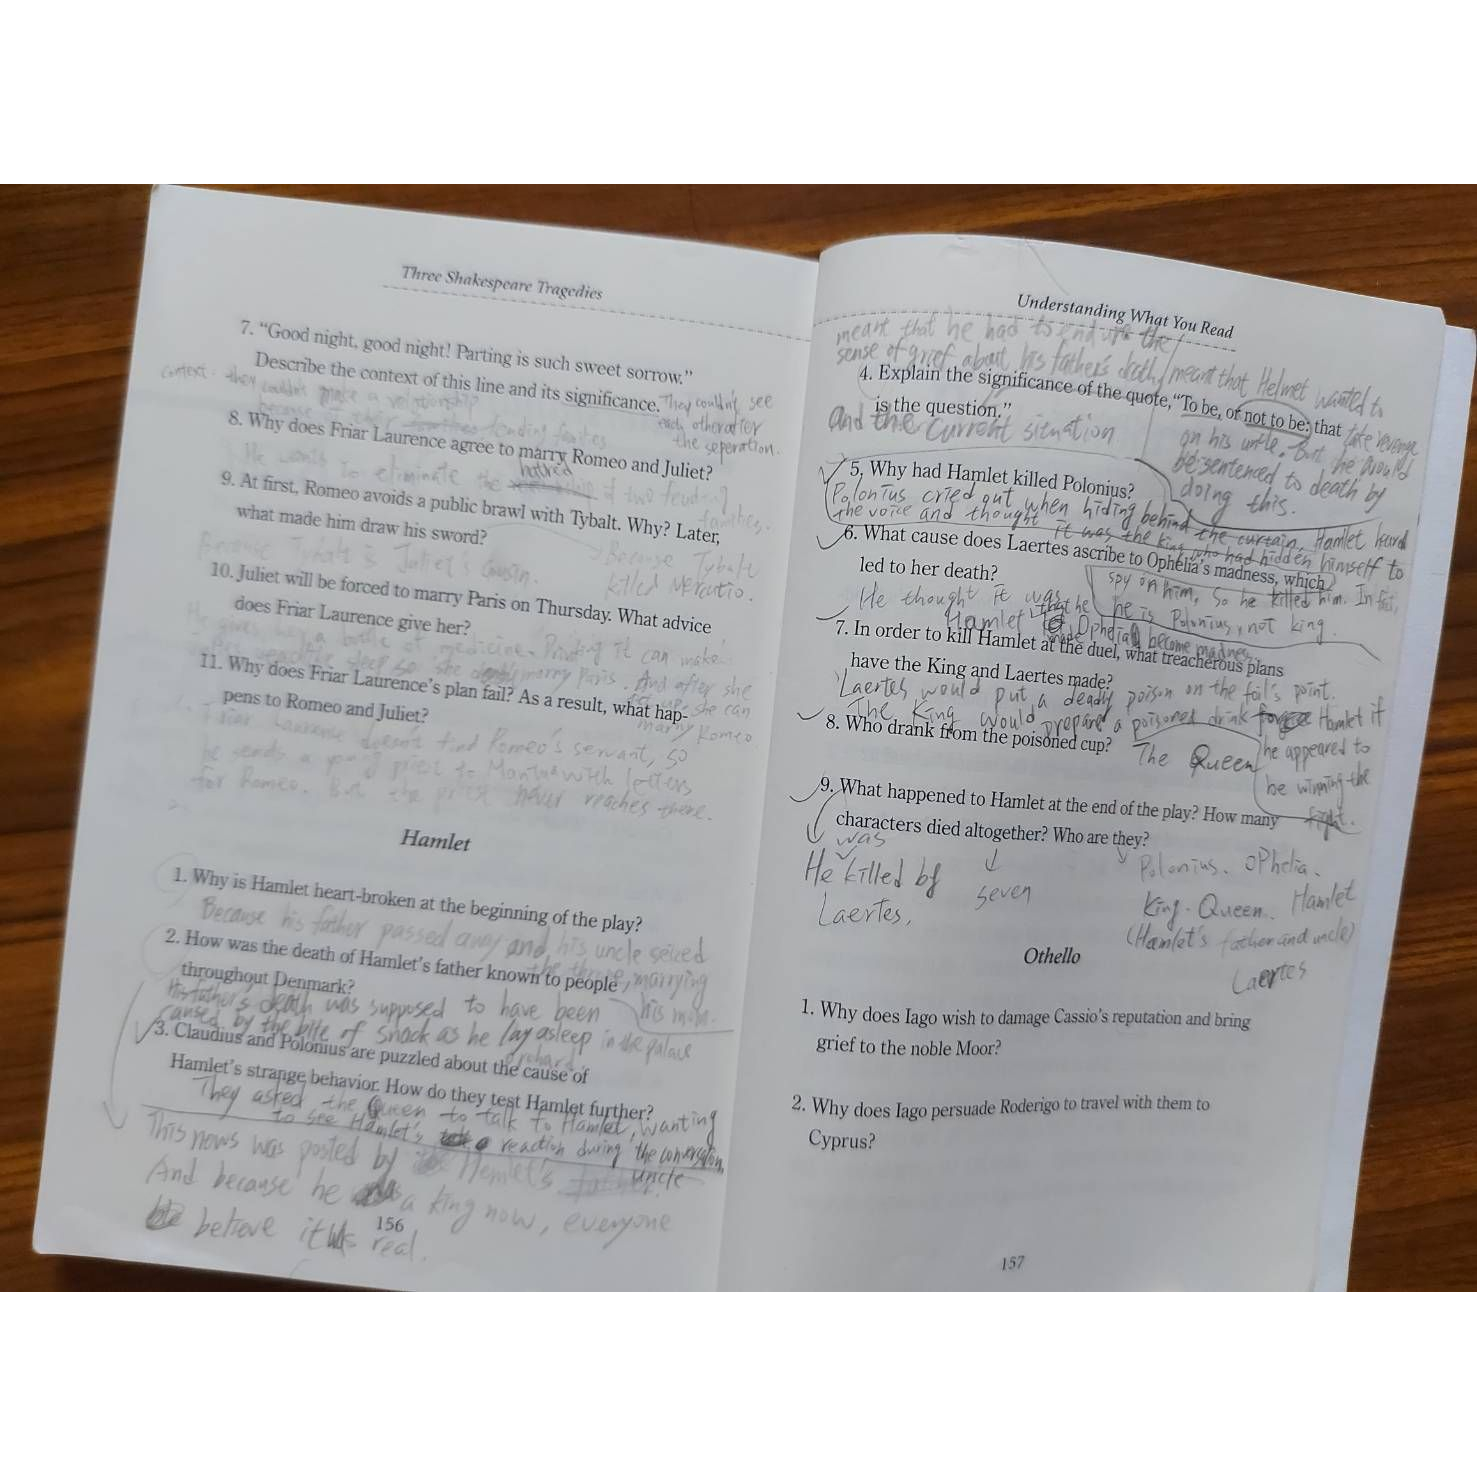 Three Shakespeare Tragedies
7. “Good night, good night! Parting is such sweet sorrow.”
Describe the context of this line and its significance. They couldn't see
context: they couldn't make a relationship each other after
because of their feuding families the seperation.
8. Why does Friar Laurence agree to marry Romeo and Juliet?
He wants to eliminate the hatred of two feuding
families.
9. At first, Romeo avoids a public brawl with Tybalt. Why? Later,
what made him draw his sword?
Because Tybalt is Juliet's cousin. Because Tybalt
killed Mercutio.
10. Juliet will be forced to marry Paris on Thursday. What advice
does Friar Laurence give her?
He gives her a bottle of medicine. it can make
sleep so she marry Paris. And after she
she can
marry Romeo.
11. Why does Friar Laurence's plan fail? As a result, what hap-
pens to Romeo and Juliet?
Friar Laurence doesn't find Romeo's servant, so
he sends a young priest to Mantua with letters
for Romeo. But the priest never reaches there.
Hamlet
1. Why is Hamlet heart-broken at the beginning of the play?
Because his father passed away and his uncle seized
the throne, marrying
his mum.
2. How was the death of Hamlet's father known to people
throughout Denmark?
His father's death was supposed to have been
caused by the bite of snack as he lay asleep in the palace
orchard.
3. Claudius and Polonius are puzzled about the cause of
Hamlet's strange behavior. How do they test Hamlet further?
They asked the Queen to talk to Hamlet, wanting
to see Hamlet's reaction during the conversation.
This news was posted by Hemlet's uncle
And because he a king now, everyone
believe it is real.
156
Understanding What You Read
meant that he had to end up the
sense of grief about his father's death / meant that Helmet wanted to
4. Explain the significance of the quote, “To be, or not to be: that take revenge
is the question.” on his uncle. But he would
and the current situation be sentenced to death by
doing this.
5. Why had Hamlet killed Polonius?
Polonius cried out when hiding behind the curtain, Hamlet heard
the voice and thought it was the king who had hidden himself to
spy on him, so he killed him. In fact,
he is Polonius, not king.
6. What cause does Laertes ascribe to Ophelia's madness, which
led to her death?
He thought it was
Hamlet that he made Ophelia become madness
7. In order to kill Hamlet at the duel, what treacherous plans
have the King and Laertes made?
Laertes would put a deadly poison on the foil's point.
The King would prepare a poisoned drink Hamlet if
he appeared to
be winning the
fight.
8. Who drank from the poisoned cup?
The Queen
9. What happened to Hamlet at the end of the play? How many
characters died altogether? Who are they?
He was killed by
Laertes,
seven
Polonius. Ophelia.
King. Queen. Hamlet
(Hamlet's father and uncle)
Laertes
Othello
1. Why does Iago wish to damage Cassio's reputation and bring
grief to the noble Moor?
2. Why does Iago persuade Roderigo to travel with them to
Cyprus?
157